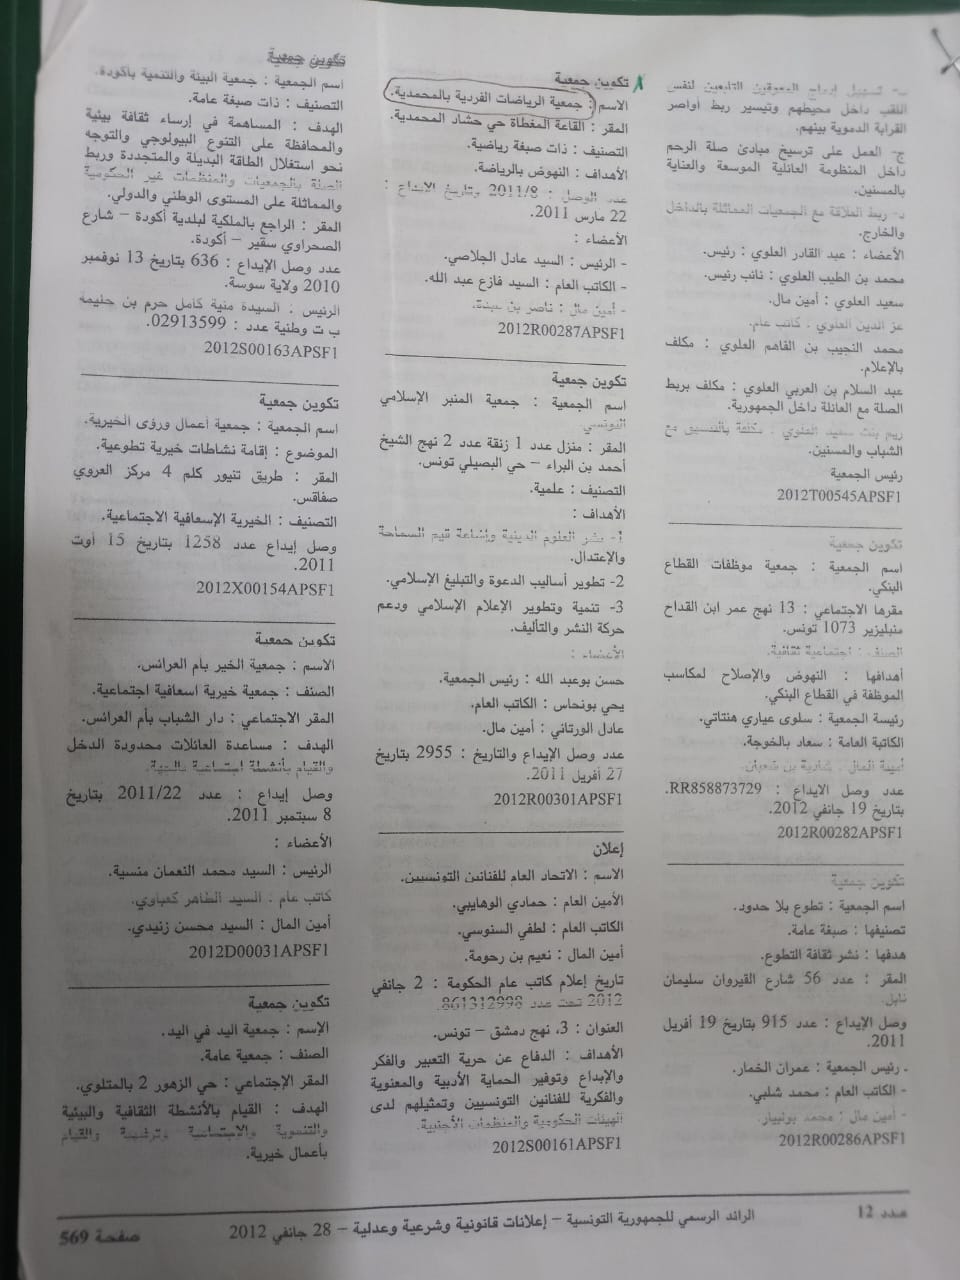 ب- تسهيل إدماج المعوقين التابعين لنفس
اللقب داخل محيطهم وتيسير ربط أواصر
القرابة الدموية بينهم.
ج- العمل على ترسيخ مبادئ صلة الرحم
داخل المنظومة العائلية الموسعة والعناية
بالمسنين.
د- ربط العلاقة مع الجمعيات المماثلة بالداخل
والخارج.
الأعضاء : عبد القادر العلوي : رئيس.
محمد بن الطيب العلوي : نائب رئيس.
سعيد العلوي : أمين مال.
عز الدين العلوي : كاتب عام.
محمد النجيب بن القاهم العلوي : مكلف
بالإعلام.
عبد السلام بن العربي العلوي : مكلف بربط
الصلة مع العائلة داخل الجمهورية.
ريم بنت سعيد العلوي : مكلفة بالتنسيق مع
الشباب والمسنين.
رئيس الجمعية
2012T00545APSF1
تكوين جمعية
اسم الجمعية : جمعية موظفات القطاع
البنكي.
مقرها الاجتماعي : 13 نهج عمر ابن القداح
منبليزير 1073 تونس.
الصنف : اجتماعية ثقافية.
أهدافها : النهوض والإصلاح لمكاسب
الموظفة في القطاع البنكي.
رئيسة الجمعية : سلوى عياري هنتاتي.
الكاتبة العامة : سعاد بالخوجة.
أمينة المال : شاربة بن شعبان.
عدد وصل الايداع : RR858873729.
بتاريخ 19 جانفي 2012.
2012R00282APSF1
تكوين جمعية
اسم الجمعية : تطوع بلا حدود.
تصنيفها : صبغة عامة.
هدفها : نشر ثقافة التطوع.
المقر : عدد 56 شارع القيروان سليمان
نابل.
وصل الإيداع : عدد 915 بتاريخ 19 أفريل
2011.
- رئيس الجمعية : عمران الخمار.
- الكاتب العام : محمد شلبي.
- أمين مال : محمد بولبيار.
2012R00286APSF1
تكوين جمعية
الاسم : جمعية الرياضات الفردية بالمحمدية.
المقر : القاعة المغطاة حي حشاد المحمدية.
التصنيف : ذات صبغة رياضية.
الأهداف : النهوض بالرياضة.
عدد الوصل : 2011/8 وتاريخ الايداع :
22 مارس 2011.
الأعضاء :
- الرئيس : السيد عادل الجلاصي.
- الكاتب العام : السيد فازع عبد الله.
- أمين مال : ناصر بن عبدة.
2012R00287APSF1
تكوين جمعية
اسم الجمعية : جمعية المنبر الإسلامي
التونسي
المقر : منزل عدد 1 زنقة عدد 2 نهج الشيخ
أحمد بن البراء – حي البصيلي تونس.
التصنيف : علمية.
الأهداف :
1- نشر العلوم الدينية وإشاعة قيم السماحة
والاعتدال.
2- تطوير أساليب الدعوة والتبليغ الإسلامي.
3- تنمية وتطوير الإعلام الإسلامي ودعم
حركة النشر والتأليف.
الأعضاء :
حسن بوعبد الله : رئيس الجمعية.
يحي بونحاس : الكاتب العام.
عادل الورتاني : أمين مال.
عدد وصل الإيداع والتاريخ : 2955 بتاريخ
27 أفريل 2011.
2012R00301APSF1
إعلان
الاسم : الاتحاد العام للفنانين التونسيين.
الأمين العام : حمادي الوهايبي.
الكاتب العام : لطفي السنوسي.
أمين المال : نعيم بن رحومة.
تاريخ إعلام كاتب عام الحكومة : 2 جانفي
2012 تحت عدد 861312998.
العنوان : 3، نهج دمشق – تونس.
الأهداف : الدفاع عن حرية التعبير والفكر
والإبداع وتوفير الحماية الأدبية والمعنوية
والفكرية للفنانين التونسيين وتمثيلهم لدى
الهيئات الحكومية والمنظمات الأجنبية.
2012S00161APSF1
تكوين جمعية
اسم الجمعية : جمعية البيئة والتنمية بأكودة.
التصنيف : ذات صبغة عامة.
الهدف : المساهمة في إرساء ثقافة بيئية
والمحافظة على التنوع البيولوجي والتوجه
نحو استغلال الطاقة البديلة والمتجددة وربط
الصلة بالجمعيات والمنظمات غير الحكومية
والمماثلة على المستوى الوطني والدولي.
المقر : الراجع بالملكية لبلدية أكودة – شارع
الصحراوي سقير – أكودة.
عدد وصل الإيداع : 636 بتاريخ 13 نوفمبر
2010 ولاية سوسة.
الرئيس : السيدة منية كامل حرم بن حليمة
ب ت وطنية عدد : 02913599.
2012S00163APSF1
تكوين جمعية
اسم الجمعية : جمعية أعمال ورؤى الخيرية.
الموضوع : إقامة نشاطات خيرية تطوعية.
المقر : طريق تنيور كلم 4 مركز العروي
صفاقس.
التصنيف : الخيرية الإسعافية الاجتماعية.
وصل إيداع عدد 1258 بتاريخ 15 أوت
2011.
2012X00154APSF1
تكوين جمعية
الاسم : جمعية الخير بأم العرائس.
الصنف : جمعية خيرية اسعافية اجتماعية.
المقر الاجتماعي : دار الشباب بأم العرائس.
الهدف : مساعدة العائلات محدودة الدخل
والقيام بأنشطة اجتماعية بالجهة.
وصل إيداع : عدد 2011/22 بتاريخ
8 سبتمبر 2011.
الأعضاء :
الرئيس : السيد محمد النعمان منسية.
كاتب عام : السيد الطاهر كعباوي.
أمين المال : السيد محسن زنيدي.
2012D00031APSF1
تكوين جمعية
الإسم : جمعية اليد في اليد.
الصنف : جمعية عامة.
المقر الإجتماعي : حي الزهور 2 بالمتلوي.
الهدف : القيام بالأنشطة الثقافية والبيئية
والتنموية والاجتماعية وترفيهية والقيام
بأعمال خيرية.
عدد 12
الرائد الرسمي للجمهورية التونسية – إعلانات قانونية وشرعية وعدلية – 28 جانفي 2012
صفحة 569